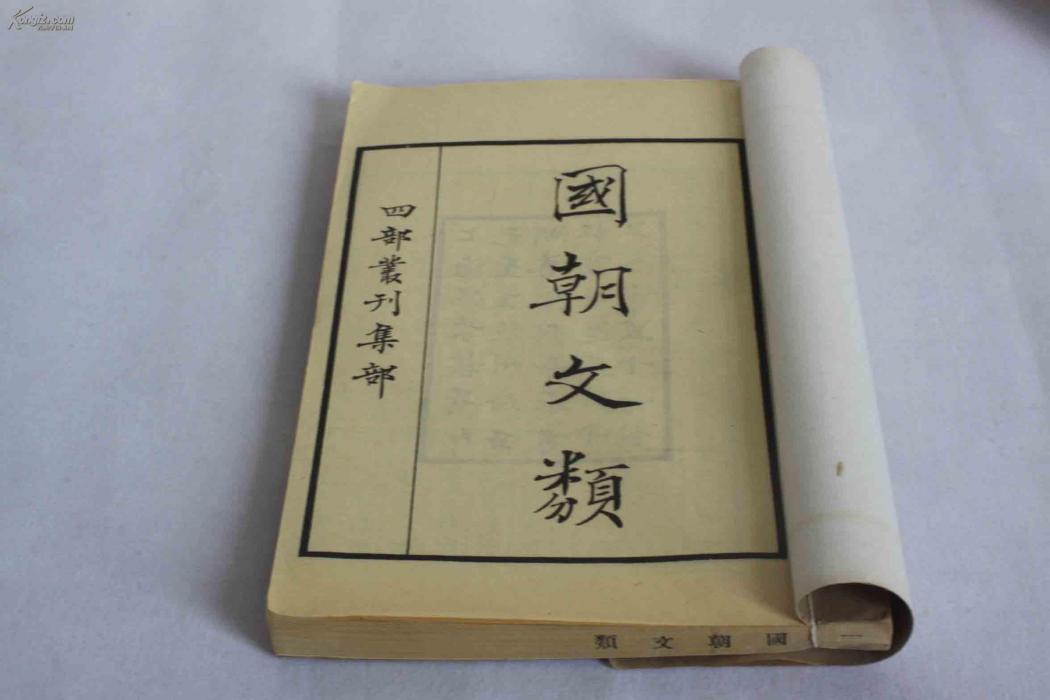 國朝文類
四部叢刊集部
國朝文類 一
Kongfz.com